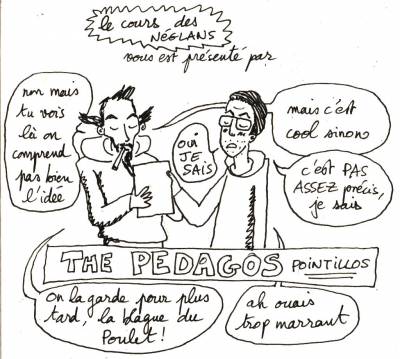 le cours des
NÉGLANS
vous est présenté par
non mais
tu vois
là on
comprend
pas bien
l'idée
oui
JE
SAIS
mais c'est
cool sinon
c'est PAS
ASSEZ précis,
je sais
THE PEDAGOS POINTILLOS
On la garde pour plus
tard, la blague du
Poulet !
ah ouais
trop marrant